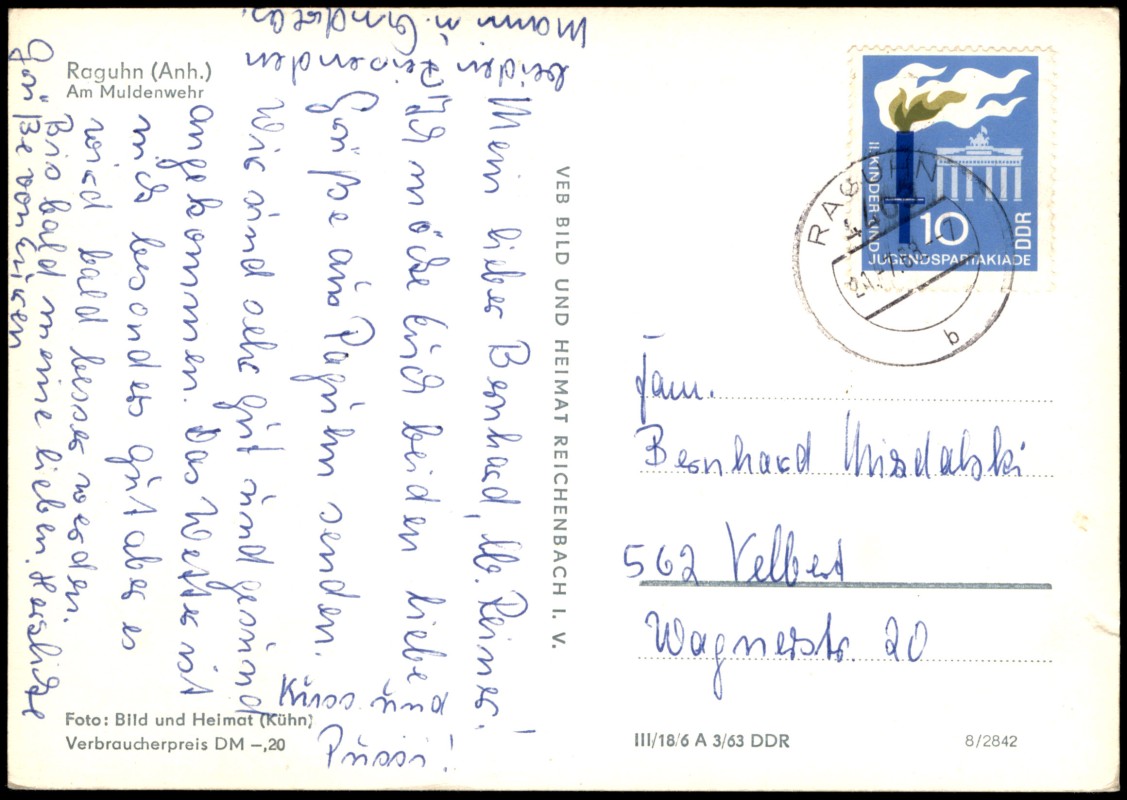 Raguhn (Anh.)
Am Muldenwehr
Mein lieber Bernhard, lb. Reiner!
Ich möche Euch beiden liebe
Grüße aus Raguhn senden.
Wir sind sehr gut und gesund
angekommen. Das Wetter ist
nich besonders gut aber es
wird bald besser werden.
Bis bald meine lieben. Herzliche
Grüße von Euren
beiden Reisenden
Mami u.
Kuss und
Pussi!
Foto: Bild und Heimat (Kühn)
Verbraucherpreis DM –,20
VEB BILD UND HEIMAT REICHENBACH I. V.
II. KINDER- UND
JUGENDSPARTAKIADE
10
DDR
RAGUHN
b
Fam.
Bernhard
562 Velbert
Wagnerstr. 20
III/18/6 A 3/63 DDR
8/2842